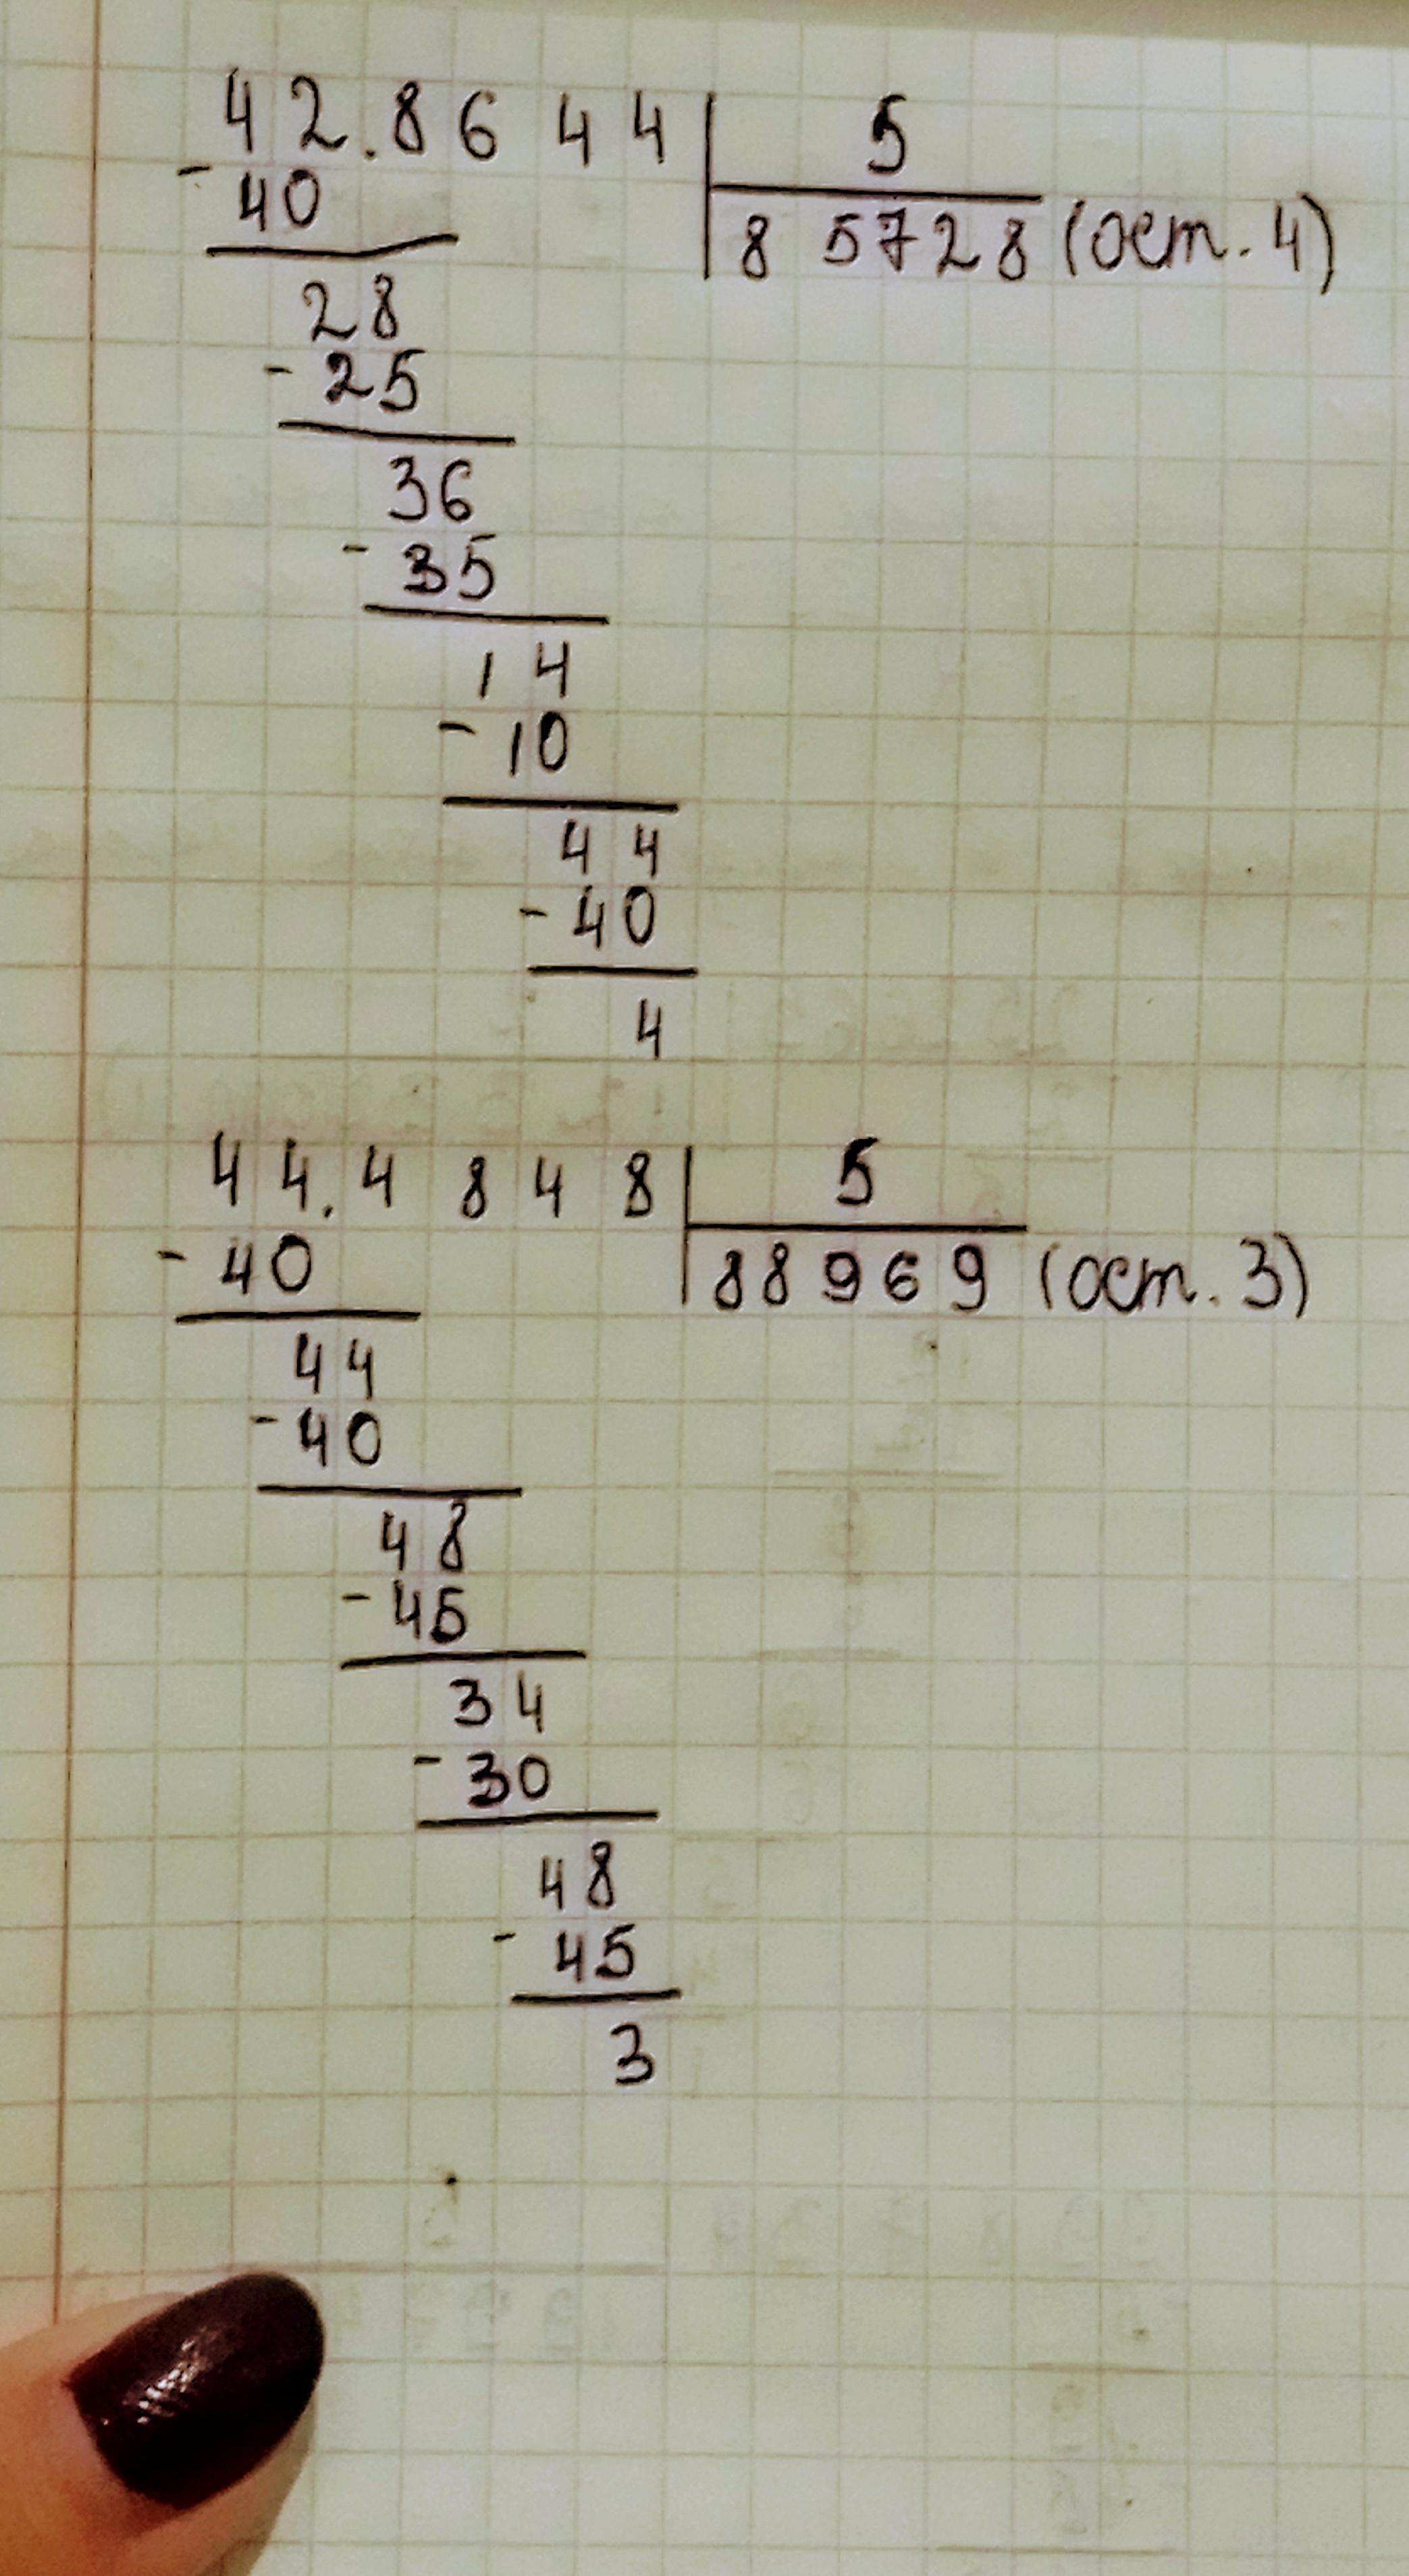 42.8644 | 5
- 40 | 85728 (ост. 4)
28
- 25
36
- 35
14
- 10
44
- 40
4
44.4848 | 5
- 40 | 88969 (ост. 3)
44
- 40
48
- 45
34
- 30
48
- 45
3